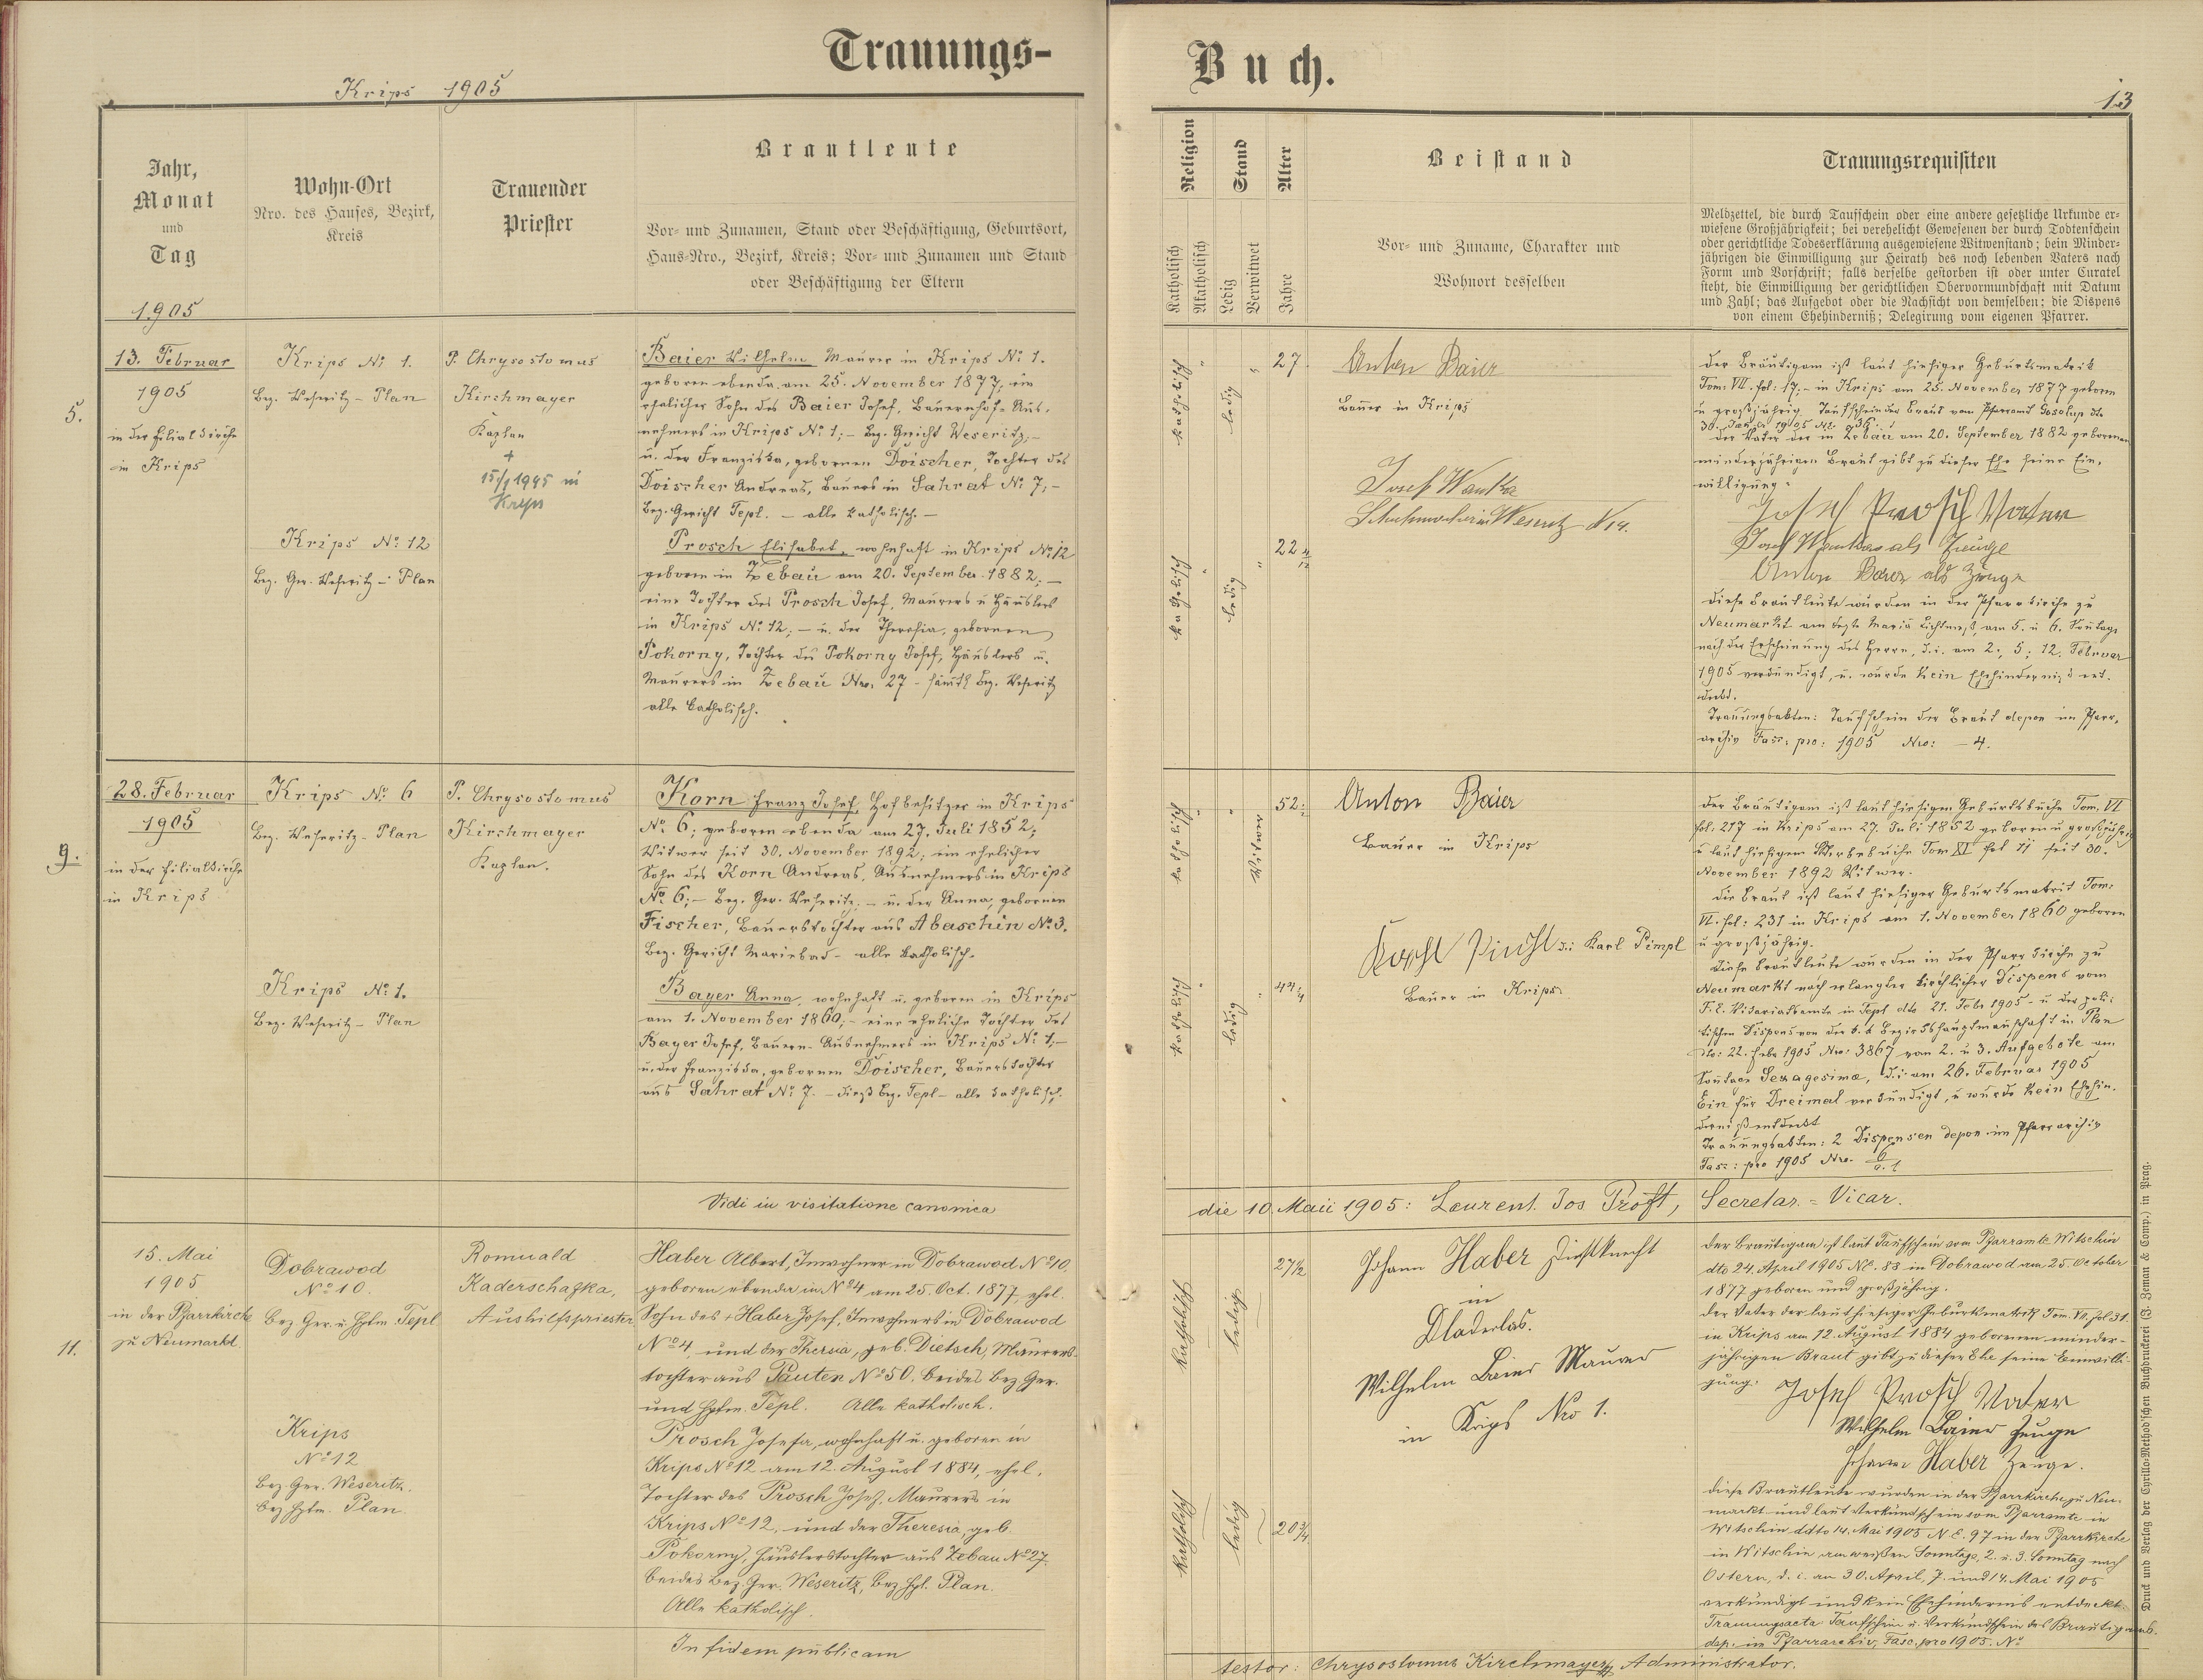 Trauungs-
Krips 1905
Jahr,
Monat
und
Tag
1905
Wohn-Ort
Nro. des Hauses, Bezirk,
Kreis
Trauender
Priester
Brautleute
Vor- und Zunamen, Stand oder Beschäftigung, Geburtsort,
Haus-Nro., Bezirk, Kreis; Vor- und Zunamen und Stand
oder Beschäftigung der Eltern
5.
13. Februar
1905
in der Filialkirche
in Krips
Krips № 1.
Bez. Weseritz - Plan
Krips № 12
Bez. Ger. Weseritz - Plan
P. Chrysostomus
Kirchmayer
Kaplan
+
15/1 1945 in
Krips
Baier Wilhelm Maurer in Krips № 1.
geboren ebenda am 25. November 1877; ein
ehelicher Sohn des Baier Josef, Bauernhof-Aus-
nehmers in Krips № 1; - Bez. Gericht Weseritz, -
u. der Franziska, gebornen Doischer, Tochter des
Doischer Andreas, Bauers in Sahrat № 7, -
Bez. Gericht Tepl. - alle katholisch. -
Prosch Elisabet, wohnhaft in Krips № 12
geboren in Zebau am 20. September 1882; -
eine Tochter des Prosch Josef, Maurers u Häuslers
in Krips № 12; - u. der Theresia, gebornen
Pokorny, Tochter des Pokorny Josef, Häuslers u.
Maurers in Zebau Nro. 27 - sämtl. Bez. Weseritz
alle katholisch.
9.
28. Februar
1905
in der Filialkirche
in Krips
Krips № 6
Bez. Weseritz - Plan
Krips № 1.
Bez. Weseritz - Plan
P. Chrysostomus
Kirchmayer
Kaplan.
Korn Franz Josef, Hofbesitzer in Krips
№ 6; geboren ebenda am 27. Juli 1852;
Witwer seit 30. November 1892; ein ehelicher
Sohn des Korn Andreas, Ausnehmers in Krips
№ 6; - Bez. Ger. Weseritz; - u. der Anna, gebornen
Fischer, Bauerstochter aus Abaschin № 3.
Bez. Gericht Marienbad - alle katholisch.
Bayer Anna, wohnhaft u. geboren in Krips
am 1. November 1860; - eine eheliche Tochter des
Bayer Josef, Bauern-Ausnehmers in Krips № 1, -
u. der Franziska, gebornen Doischer, Bauerstochter
aus Sahrat № 7. - dieß Bez. Tepl - alle katholisch.
Vidi in visitatione canonica
11.
15. Mai
1905
in der Pfarrkirche
zu Neumarkt.
Dobrawod
№ 10.
Bez. Ger. u. Hptm. Tepl
Krips
№ 12
Bez. Ger. Weseritz.
Bez. Hptm. Plan.
Romuald
Kaderschafka,
Aushilfspriester
Haber Albert, Inwohner in Dobrawod № 10,
geboren ebenda in № 4 am 25. Oct. 1877, ehel.
Sohn des + Haber Josef, Inwohners in Dobrawod
№ 4, und der Thersia, geb. Dietsch, Maurers-
tochter aus Pauten № 50, beides Bez. Ger.
und Hptm. Tepl. Alle katholisch.
Prosch Josefa, wohnhaft u. geboren in
Krips № 12 am 12. August 1884, ehel.
Tochter des Prosch Josef, Maurers in
Krips № 12, und der Theresia, geb.
Pokorny, Häuslerstochter aus Zebau № 27.
beides Bez. Ger. Weseritz, Bez. Hpt. Plan.
Alle katholisch.
In fidem publicam
Buch.
13
Religion
Katholisch
Akatholisch
Stand
Ledig
Verwitwet
Alter
Jahre
Beistand
Vor- und Zuname, Charakter und
Wohnort desselben
Trauungsrequisiten
Meldzettel, die durch Taufschein oder eine andere gesetzliche Urkunde er-
wiesene Großjährigkeit; bei verehelicht Gewesenen der durch Todtenschein
oder gerichtliche Todeserklärung ausgewiesene Witwenstand; bein Minder-
jährigen die Einwilligung zur Heirath des noch lebenden Vaters nach
Form und Vorschrift; falls derselbe gestorben ist oder unter Curatel
steht, die Einwilligung der gerichtlichen Obervormundschaft mit Datum
und Zahl; das Aufgebot oder die Nachsicht von demselben; die Dispens
von einem Ehehinderniß; Delegirung vom eigenen Pfarrer.
katholisch
ledig
27
Anton Baier
Bauer in Krips
Josef Wanka
Schuhmacher in Weseritz № 14.
katholisch
ledig
22 4/12
der Bräutigam ist laut hiesiger Geburtsmatrik
Tom: VII. fol: 17; - in Krips am 25. November 1877 geboren
u großjährig. Taufschein der Braut vom Pfarramt
der Vater der in Zebau am 20. September 1882 gebornen
minderjährigen Braut gibt zu dieser Ehe seine Ein-
willigung.
Josef Prosch Vater
Josef Wanka als Zeuge
Anton Baier als Zeuge
diese Brautleute wurden in der Pfarrkirche zu
Neumarkt am Feste Mariä Lichtmeß, am 5. u 6. Sontage
nach der Erscheinung des Herrn, d. i. am 2., 5; 12. Februar
1905 verkündigt, u. wurde kein Ehehinderniß ent-
deckt.
Trauungsakten: Taufschein der Braut depon im Pfarr-
archiv Fasc: pro: 1905 Nro: - 4.
katholisch
Witwer
52
Anton Baier
Bauer in Krips
d. i. Karl Pimpl
Bauer in Krips
katholisch
ledig
44 1/4
der Bräutigam ist laut hiesigen Geburtsbuche Tom. VI
fol. 217 in Krips am 27. Juli 1852 geboren u großjährig
u laut hiesigem Sterbebuche Tom XI fol 11 seit 30.
November 1892 Witwer.
die Braut ist laut hiesiger Geburtsmatrik Tom:
VI. fol: 231 in Krips am 1. November 1860 geboren
u großjährig.
diese Brautleute wurden in der Pfarrkirche zu
Neumarkt nach erlangter kirchlicher Dispens vom
F. E. Vikariatsamte in Tepl dto 21. Feb. 1905 - u der poli-
tischen Dispens von der k. k Bezirkshauptmannschaft in Plan
dto: 22. Feber 1905 Nro: 3867 vom 2. u 3. Aufgebote am
Sontage Sexagesimæ, d. i. am 26. Februar 1905
Ein für Dreimal verkündigt, u wurde kein Ehehin-
derniß entdeckt
Trauungsakten: 2 Dispensen depon. im Pfarrarchiv
Fasc: pro 1905 Nro.
die 10. Maii 1905: Laurent. Jos Pröft, Secretar. = Vicar.
katholisch
ledig
27½
Johann Haber Dienstknecht
in
Dladerlas.
Wilhelm Baier Maurer
in Krips Nro 1.
katholisch
ledig
20¾
der Bräutigam ist laut Taufschein vom Pfarramte Witschin
dto 24. April 1905 N.E. 88 in Dobrawod am 25. October
1877 geboren und großjährig.
der Vater der laut hiesiger Geburtsmatrik Tom. VII. fol 31.
in Krips am 12. August 1884 geborenen minder-
jährigen Braut gibt zu dieser Ehe seine Einwilli-
gung.
Josef Prosch Vater
Wilhelm Baier Zeuge
Johann Haber Zeuge.
diese Brautleute wurden in der Pfarrkirche zu Neu-
markt und laut Verkündschein vom Pfarramte in
Witschin ddto 14. Mai 1905 N.E. 97 in der Pfarrkirche
in Witschin am weißen Sonntage, 2. u. 3. Sonntag nach
Ostern, d. i. am 30. April, 7. und 14. Mai 1905
verkündigt und kein Ehehindernis entdeckt.
Trauungsacta: Taufschein u. Verkündschein des Bräutigams
dep. im Pfarrarchiv, Fasc. pro 1905. №
testor: Chrysostomus Kirchmayer Administrator.
Druck und Verlag der Cyrillo-Method'schen Buchdruckerei (J. Zeman & Comp.) in Prag.